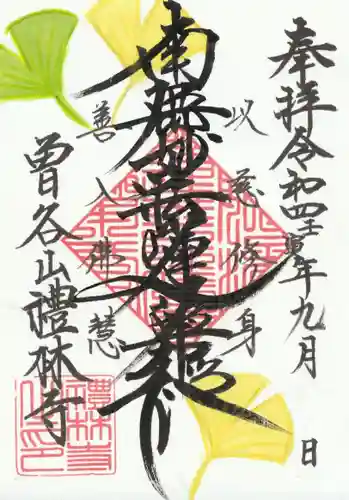 奉拝令和四壬寅年九月 日
以慈修身
南無妙法蓮華経
善入佛慧
曽谷山禮林寺